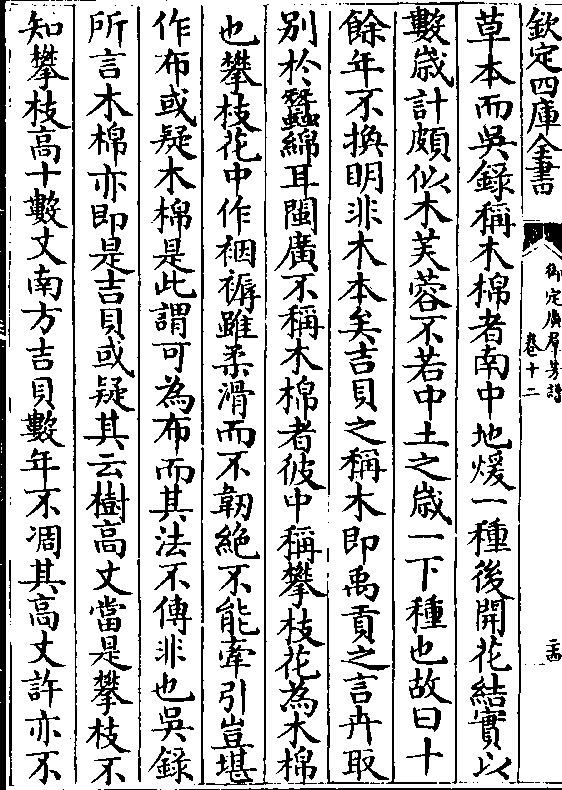 欽定四庫全書
御定廣羣芳譜
卷十二
二十四
草本而吳錄稱木棉者南中地煖一種後開花結實以
數歲計頗似木芙蓉不若中土之歲一下種也故曰十
餘年不換明非木本矣吉貝之稱木即禹貢之言卉取
別於蠶綿耳閩廣不稱木棉者彼中稱攀枝花為木棉
也攀枝花中作裀褥雖柔滑而不韌絕不能牽引豈堪
作布或疑木棉是此謂可為布而其法不傳非也吳錄
所言木棉亦即是吉貝或疑其云樹高丈當是攀枝不
知攀枝高十數丈南方吉貝數年不凋其高丈許亦不